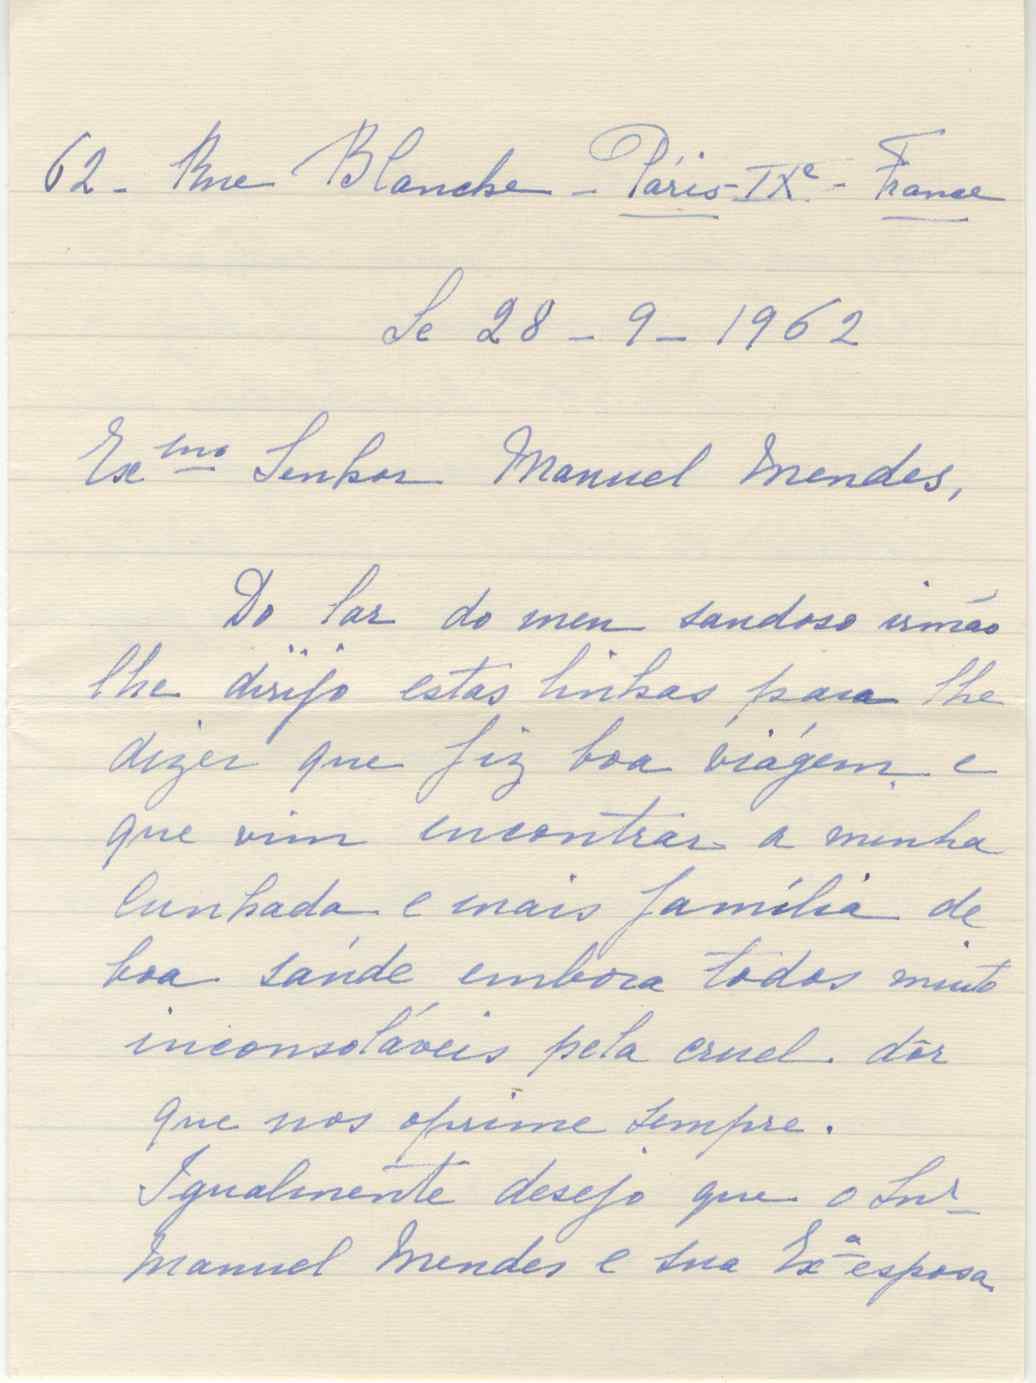 62 - Rue Blanche - Páris - IXe - France
Le 28 - 9 - 1962
Exmo Senhor Manuel Mendes,
Do lar do meu saudoso irmão
lhe dirijo estas linhas para lhe
dizer que fiz boa viágem e
que vim encontrar a minha
cunhada e mais família de
boa saúde embora todos muito
inconsoláveis pela cruel dôr
que nos oprime sempre.
Igualmente desejo que o Snr
Manuel Mendes e sua Exª esposa